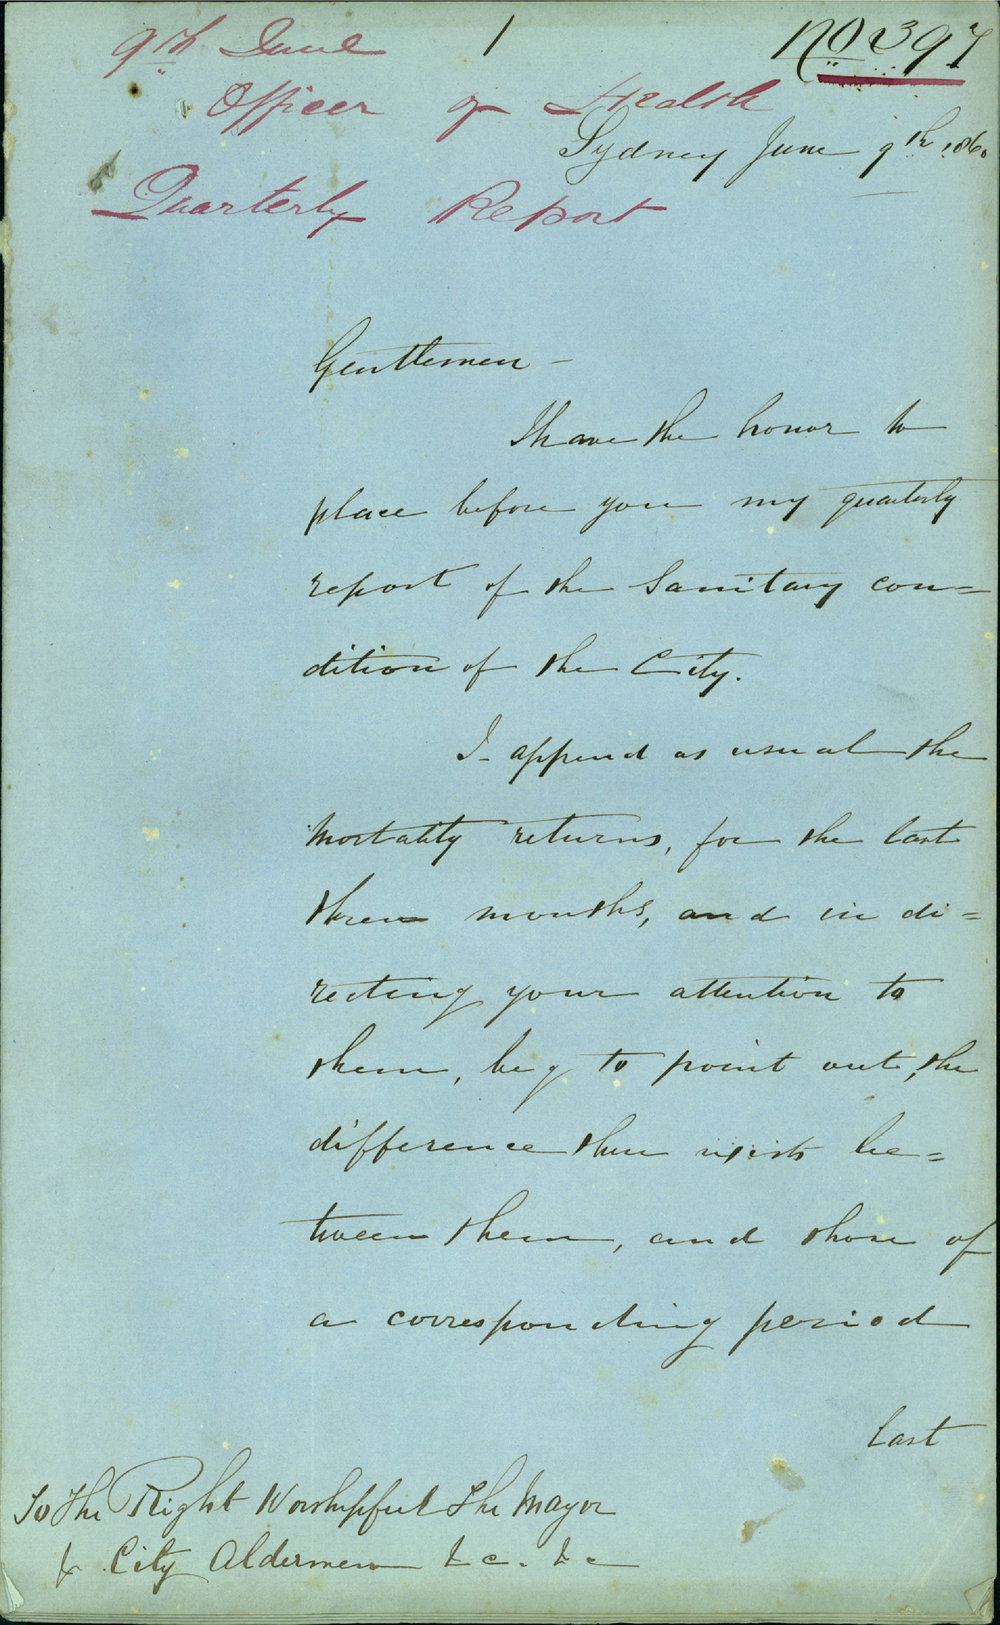 9th June 1 No 397
Officer of Health
Sydney June 9th 1860
Quarterly Report
Gentlemen -
I have the honor to
place before you my quarterly
report of the Sanitary con=
dition of the City.
I append as usual the
Mortality returns, for the last
three months, and in di=
recting your attention to
them, beg to point out, the
difference there exists be=
tween them, and those of
a corresponding period
last
To The Right Worshipful The Mayor
& City Aldermen &c. &c